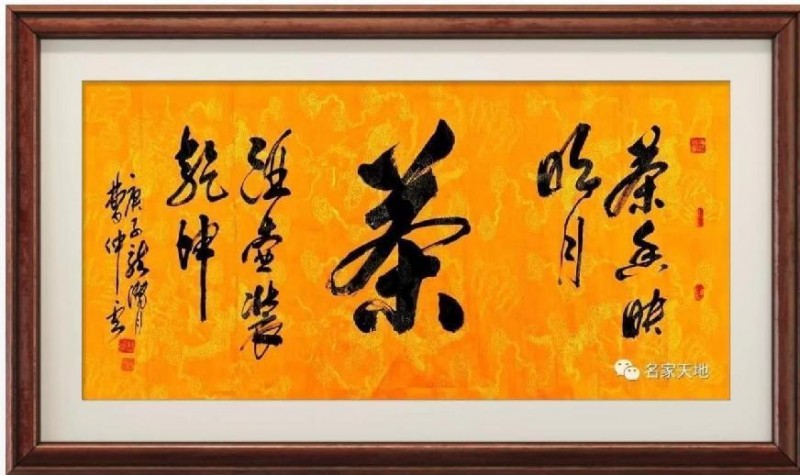 茶香映
明月
茶
壶装
乾坤
庚子龙潜月
曹仲云
名家天地